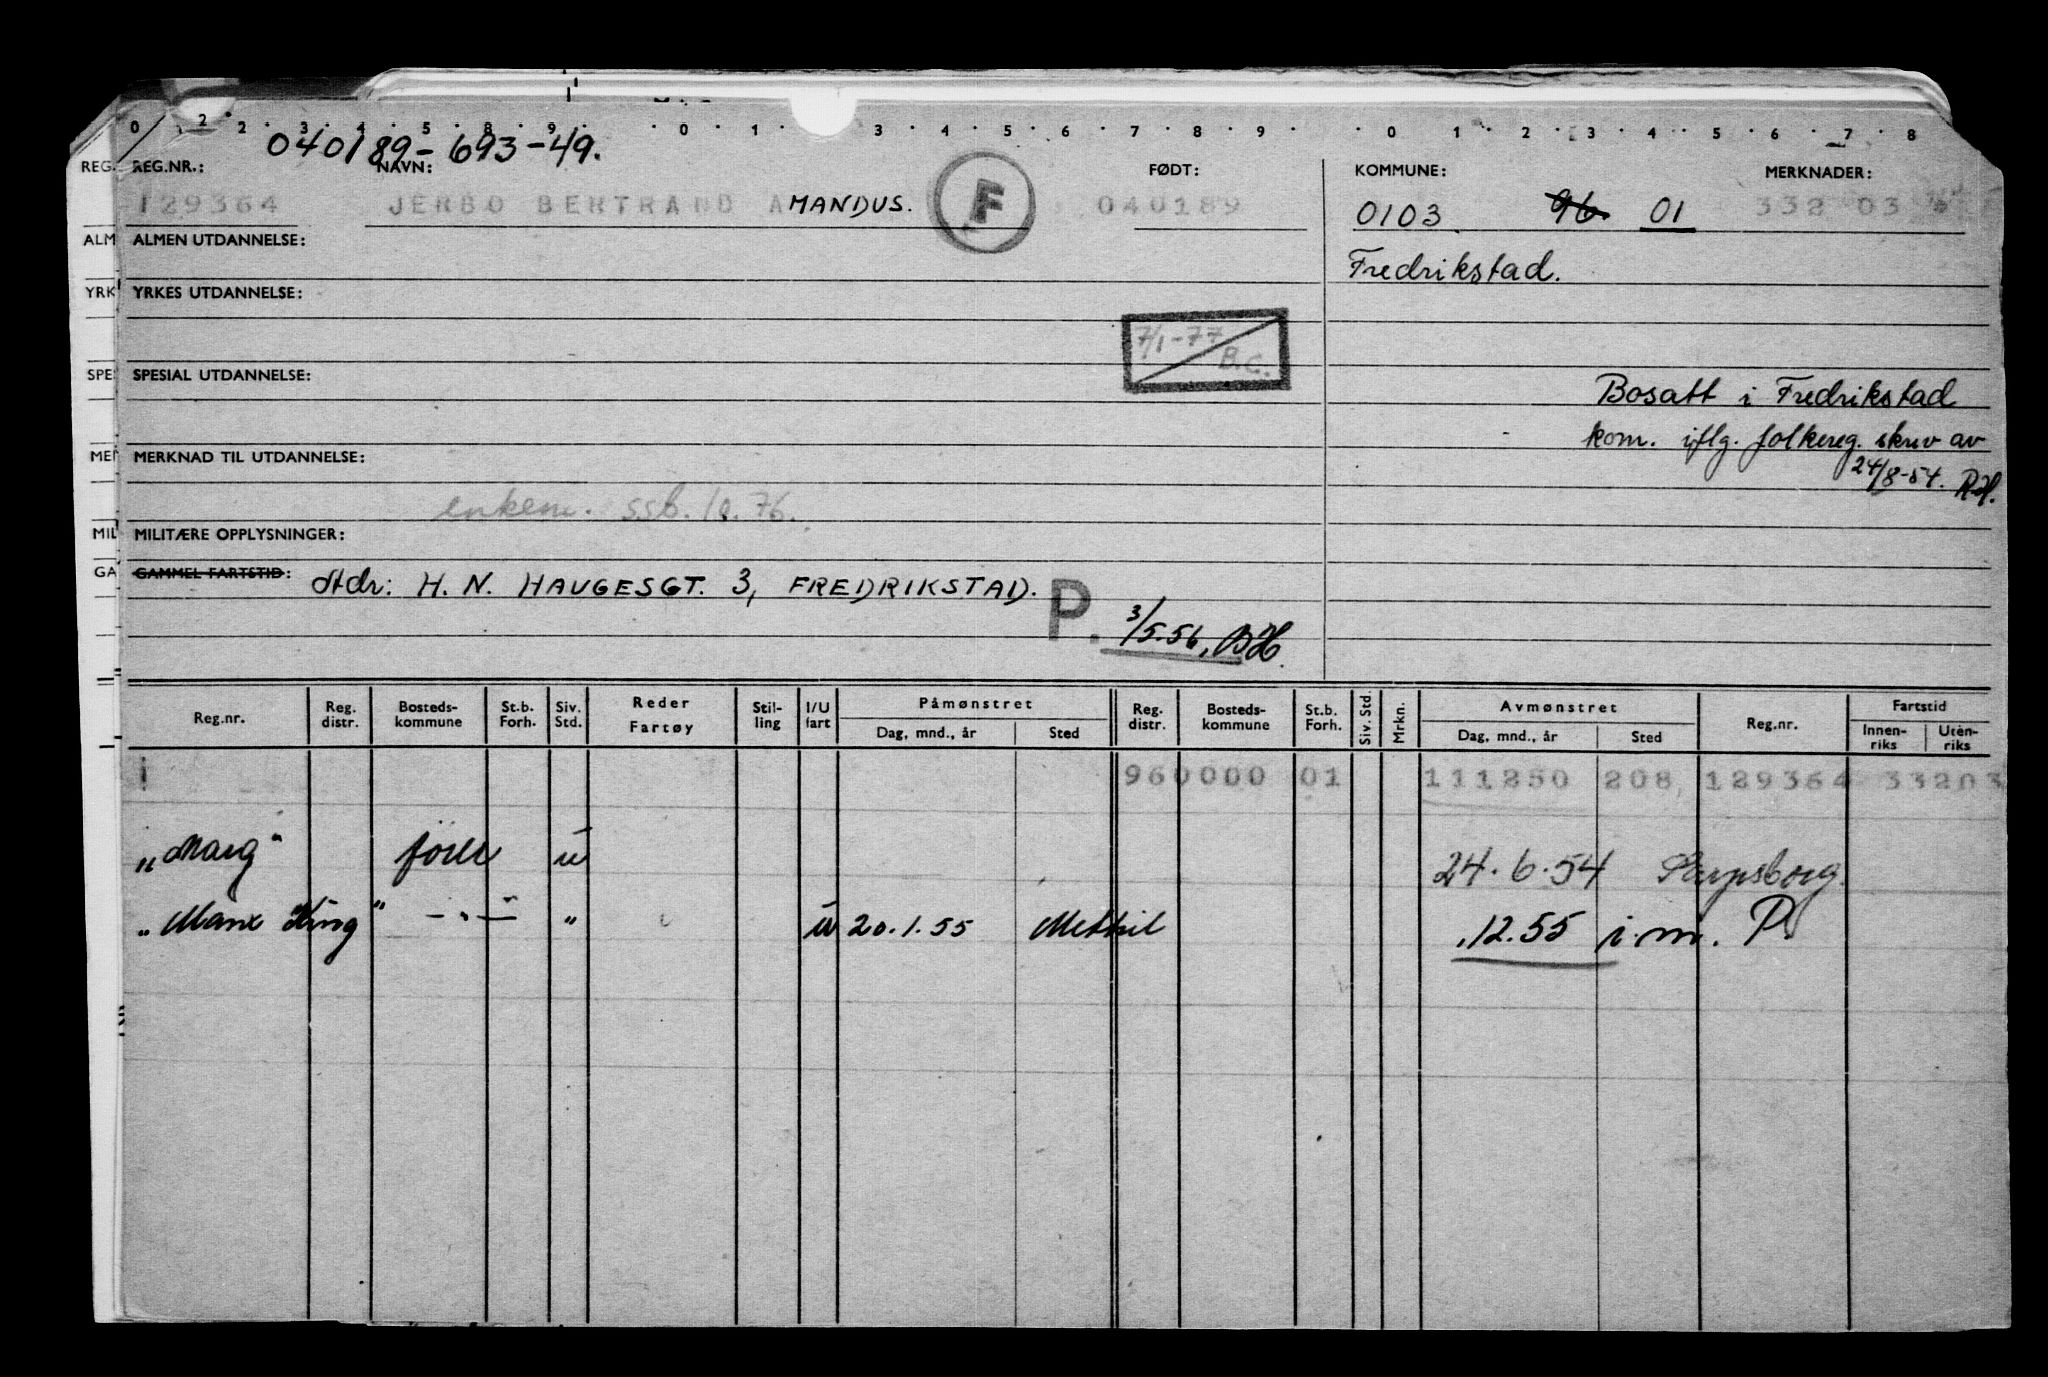 0 1 2 2 3 4 5 8 9 0 1 3 4 5 6 7 8 9 0 1 2 3 4 5 6 7 8
040189-693-49.
REG. REG.NR.: NAVN: FØDT: KOMMUNE: MERKNADER:
129364 JERBO BERTRAND AMANDUS. F 040189 0103 96 01 332 03
ALM ALMEN UTDANNELSE:
Fredrikstad.
YRK YRKES UTDANNELSE:
7/1-77 B.C.
SPE SPESIAL UTDANNELSE:
Bosatt i Fredrikstad
kom. iflg. folkereg. skriv av
24/8-54. RH.
MER MERKNAD TIL UTDANNELSE:
ssb. 10.76.
MIL MILITÆRE OPPLYSNINGER:
GA GAMMEL FARTSTID:
Adr: H. N. HAUGESGT. 3, FREDRIKSTAD.
P. 3/5.56, BH.
Reg.nr. Reg. distr. Bosteds-kommune St.b. Forh. Siv. Std. Reder Fartøy Stil-ling I/U fart Påmønstret Dag, mnd., år Sted Reg. distr. Bosteds-kommune St.b. Forh. Siv. Std. Mrkn. Avmønstret Dag, mnd., år Sted Reg.nr. Fartstid Innen-riks Uten-riks
960000 01 111250 208 129364 33203
"Marg" u 24.6.54 Sarpsborg.
"Manx King" -"- " u 20.1.55 Methil .12.55 i.m. P.